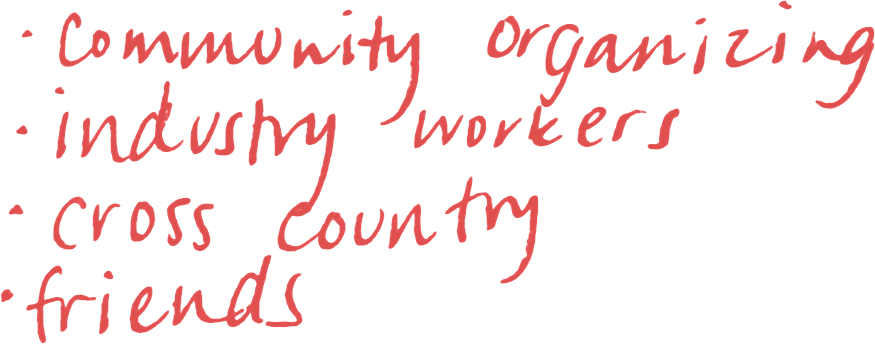 · Community organizing
· industry workers
· cross country
· friends